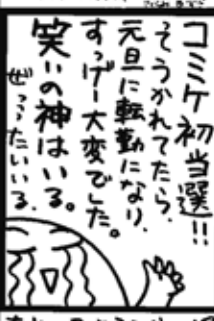 コミケ初当選!!
そうかれてたら、
元旦に転勤になり、
すっげー大変でした。
笑いの神はいる。
ぜったいいる。